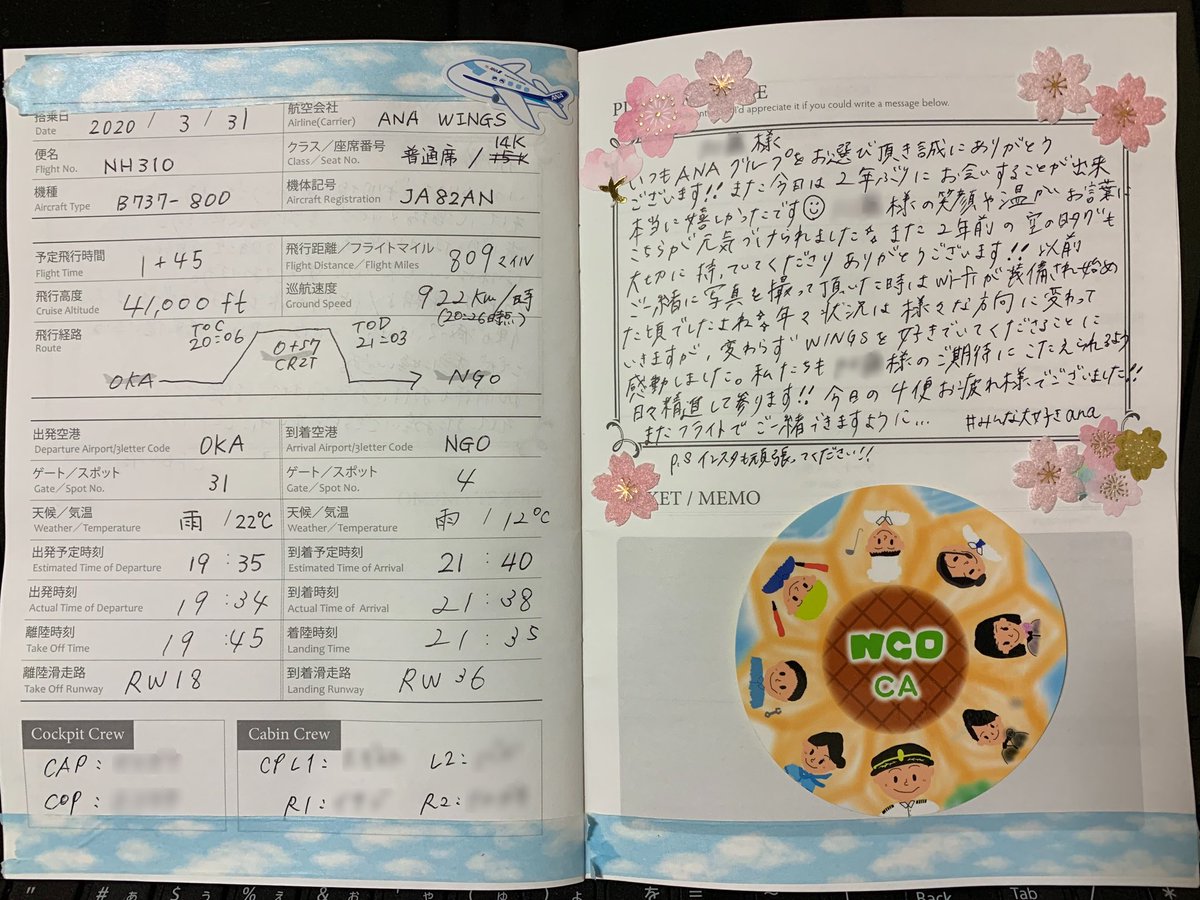 搭乗日
Date
2020 / 3 / 31
航空会社
Airline(Carrier)
ANA WINGS
ANA
便名
Flight No.
NH310
クラス/座席番号
Class/Seat No.
普通席 / 14K
15K
機種
Aircraft Type
B737-800
機体記号
Aircraft Registration
JA82AN
予定飛行時間
Flight Time
1+45
飛行距離/フライトマイル
Flight Distance/Flight Miles
809マイル
飛行高度
Cruise Altitude
41,000 ft
巡航速度
Ground Speed
922km/時
(20:26時点)
飛行経路
Route
TOC
20:06
0+57
CRZT
TOD
21:03
OKA
NGO
出発空港
Departure Airport/3letter Code
OKA
到着空港
Arrival Airport/3letter Code
NGO
ゲート/スポット
Gate/Spot No.
31
ゲート/スポット
Gate/Spot No.
4
天候/気温
Weather/Temperature
雨 /22℃
天候/気温
Weather/Temperature
雨 /12℃
出発予定時刻
Estimated Time of Departure
19:35
到着予定時刻
Estimated Time of Arrival
21:40
出発時刻
Actual Time of Departure
19:34
到着時刻
Actual Time of Arrival
21:38
離陸時刻
Take Off Time
19:45
着陸時刻
Landing Time
21:35
離陸滑走路
Take Off Runway
RW18
到着滑走路
Landing Runway
RW36
Cockpit Crew
CAP:
COP:
Cabin Crew
CPL1:
L2:
R1:
R2:
appreciate it if you could write a message below.
様
いつもANAグループをお選び頂き誠にありがとう
ございます!! また今日は2年ぶりにお会いすることが出来
本当に嬉しかったです 様の笑顔や温かいお言葉に
こちらが元気づけられました また2年前の空の日タグも
大切に持っていてくださりありがとうございます!! 以前
ご一緒に写真を撮って頂いた時はWi-Fiが装備され始め
た頃でしたよね 年々状況は様々な方向に変わって
いきますが 変わらずWINGSを好きでいてくださることに
感動しました。私たちも 様のご期待にこたえられるよう
日々精進して参ります!! 今日の4便お疲れ様でございました!!
またフライトでご一緒できますように… #みんな大好きana
P.S インスタも頑張ってください!!
KET / MEMO
NGO
CA
" # ぁ $ ぅ % ぇ & ぉ ' ゃ ( ゅ ) ょ を = ~ Back Tab *